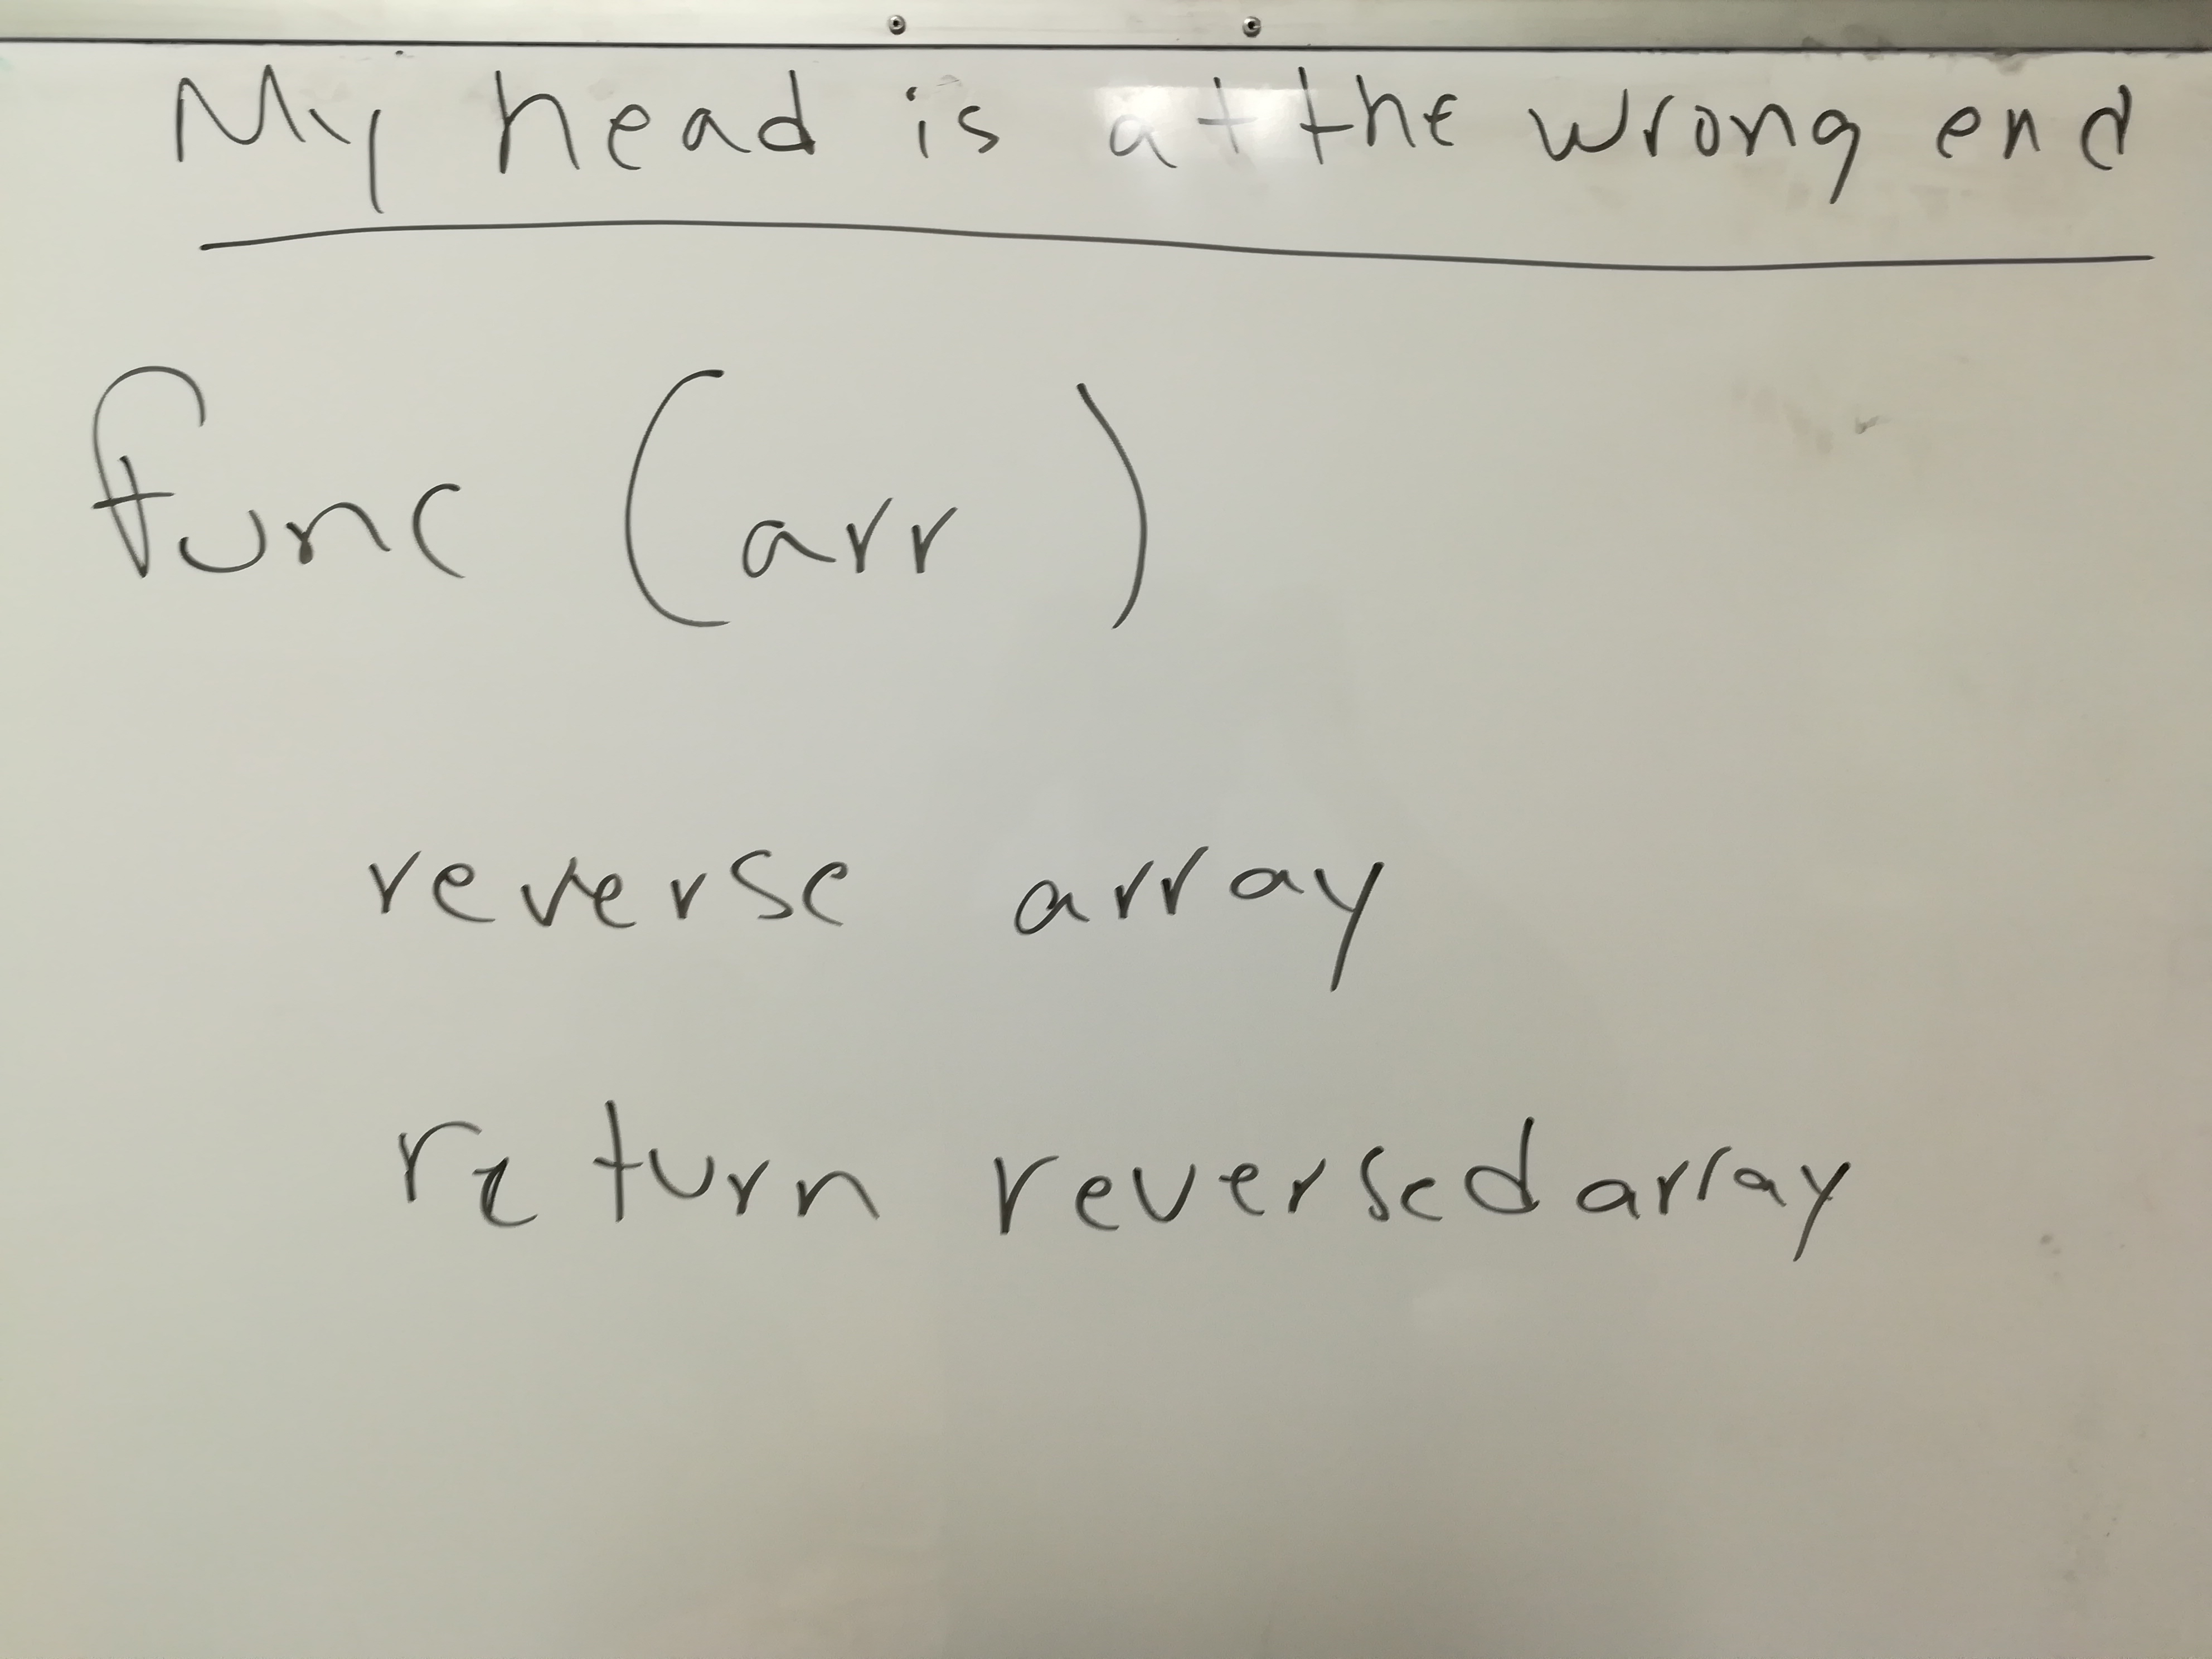 My head is at the wrong end
func (arr)
reverse array
return reversed array